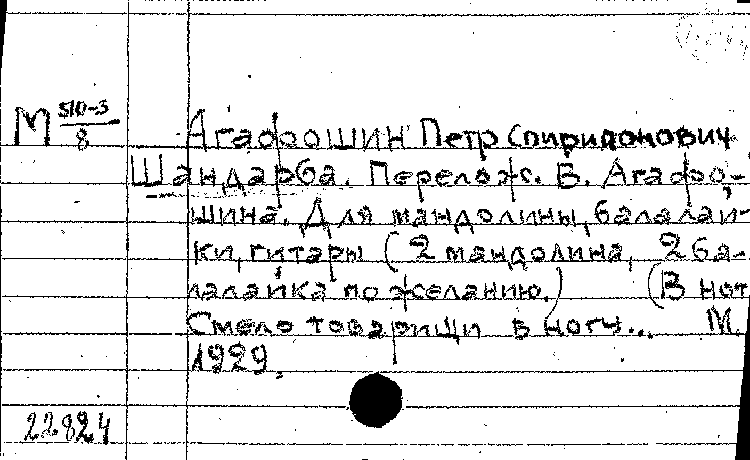 М 510-3/8
Агафошин Петр Спиридонович
Шандарба. Перелож. В. Агафо-
шина. Для мандолины, балалай-
ки, гитары (2 мандолина, 2 ба-
лалайка по желанию.) (В нот
Смело товарищи в ногу... М.
1929.
22824